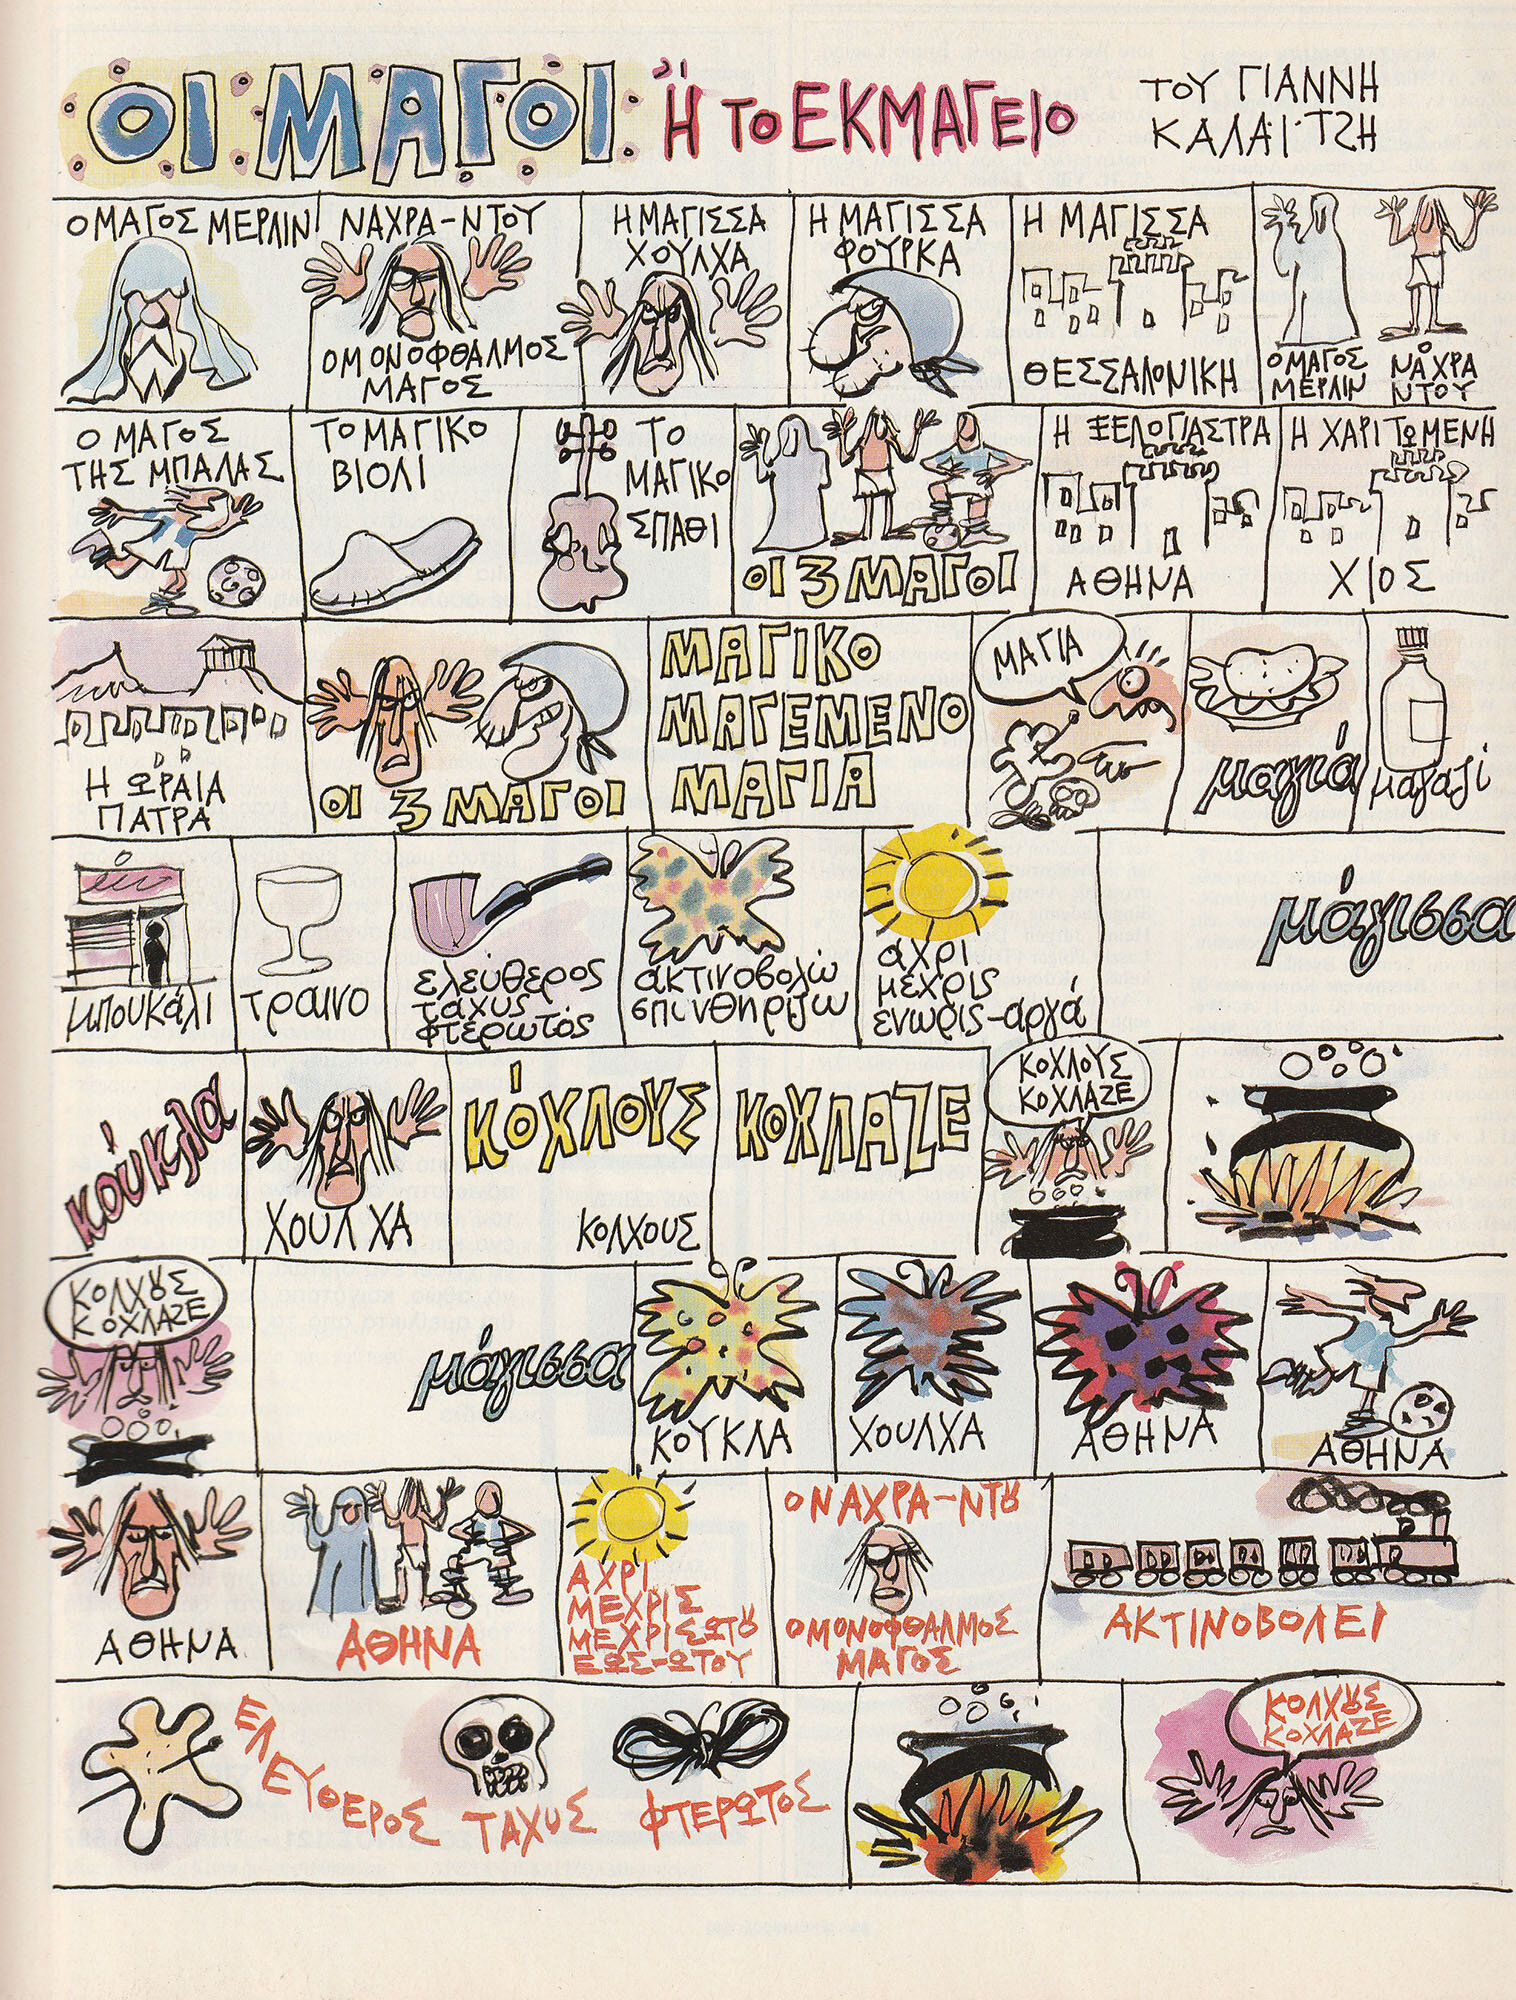 ΟΙ ΜΑΓΟΙ Ή ΤΟ ΕΚΜΑΓΕΙΟ
ΤΟΥ ΓΙΑΝΝΗ
ΚΑΛΑΪΤΖΗ
Ο ΜΑΓΟΣ ΜΕΡΛΙΝ
ΝΑΧΡΑ-ΝΤΟΥ
Ο ΜΟΝΟΦΘΑΛΜΟΣ
ΜΑΓΟΣ
Η ΜΑΓΙΣΣΑ
ΧΟΥΛΧΑ
Η ΜΑΓΙΣΣΑ
ΦΟΥΡΚΑ
Η ΜΑΓΙΣΣΑ
ΘΕΣΣΑΛΟΝΙΚΗ
Ο ΜΑΓΟΣ
ΜΕΡΛΙΝ
Ο
ΝΑΧΡΑ
ΝΤΟΥ
Ο ΜΑΓΟΣ
ΤΗΣ ΜΠΑΛΑΣ
ΤΟ ΜΑΓΙΚΟ
ΒΙΟΛΙ
ΤΟ
ΜΑΓΙΚΟ
ΣΠΑΘΙ
ΟΙ 3 ΜΑΓΟΙ
Η ΞΕΛΟΓΙΑΣΤΡΑ
ΑΘΗΝΑ
Η ΧΑΡΙΤΩΜΕΝΗ
ΧΙΟΣ
Η ΩΡΑΙΑ
ΠΑΤΡΑ
ΟΙ 3 ΜΑΓΟΙ
ΜΑΓΙΚΟ
ΜΑΓΕΜΕΝΟ
ΜΑΓΙΑ
ΜΑΓΙΑ
μαγιά
μαγαζί
μπουκάλι
τραινο
ελεύθερος
ταχυς
φτερωτός
ακτινοβολώ
σπινθηρίζω
αχρι
μέχρις
ενωρίς-αργά
μάγισσα
κούκλα
ΧΟΥΛΧΑ
ΚΌΧΛΟΥΣ
ΚΟΛΧΟΥΣ
ΚΟΧΛΑΖΕ
ΚΟΧΛΟΥΣ
ΚΟΧΛΑΖΕ
ΚΟΛΧȣΣ
ΚΟΧΛΑΖΕ
μάγισσα
ΚΟΥΚΛΑ
ΧΟΥΛΧΑ
ΑΘΗΝΑ
ΑΘΗΝΑ
ΑΘΗΝΑ
ΑΘΗΝΑ
ΑΧΡΙ
ΜΕΧΡΙΣ
ΜΕΧΡΙΣ ΩΤȣ
ΕΩΣ-ΩΤΟΥ
Ο ΝΑΧΡΑ-ΝΤȣ
Ο ΜΟΝΟΦΘΑΛΜΟΣ
ΜΑΓΟΣ
ΑΚΤΙΝΟΒΟΛΕΙ
ΕΛΕΥΘΕΡΟΣ
ΤΑΧΥΣ
ΦΤΕΡΩΤΟΣ
ΚΟΛΧȣΣ
ΚΟΧΛΑΖΕ